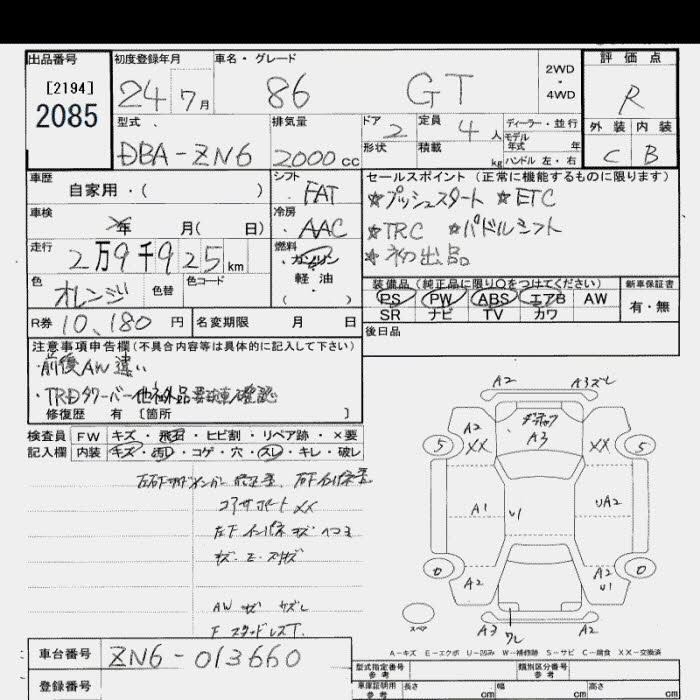 出品番号 初度登録年月 車名・グレード 評価点
[2194] 24 7月 86 GT 2WD・4WD R
2085
型式 排気量 ドア 2 定員 4人 ディーラー・並行 外装 内装
モデル年式 年
DBA-ZN6 2000cc 形状 積載 kg ハンドル 左・右 C B
車歴 シフト セールスポイント(正常に機能するものに限ります)
自家用・( ) FAT ☆プッシュスタート ☆ETC
車検 年 月( 日) 冷房 AAC ☆TRC ☆パドルシフト
走行 2万9千925km 燃料 ガソリン ☆初出品
軽油
( )
色 オレンジ 色替 色コード 装備品(純正品に限り○をつけてください) 新車保証書
PS PW ABS エアB AW 有・無
R券 10,180円 名変期限 月 日 SR ナビ TV カワ
後日品
注意事項申告欄(不具合内容等は具体的に記入して下さい)
・前後AW違い
・TRDタワーバー他社外品要現車確認
修復歴 有〔箇所 〕
検査員 FW キズ・飛石・ヒビ割・リペア跡・×要
記入欄 内装 キズ・汚レ・コゲ・穴・スレ・キレ・破レ
コアサポートXX
AW キズ サズレ
A2 A3ズレ
A2 XX A3 XX
5 5
A1 U1 UA2
0 0
A2 A2 U1
A3 ワレ A2
スペア
A-キズ E-エクボ U-凹み W-補修跡 S-サビ C-腐食 XX-交換済
車台番号 ZN6-013660
型式指定番号 参考 類別区分番号 参考
登録番号 車庫証明用 参考 長さ cm 幅 cm 高さ cm